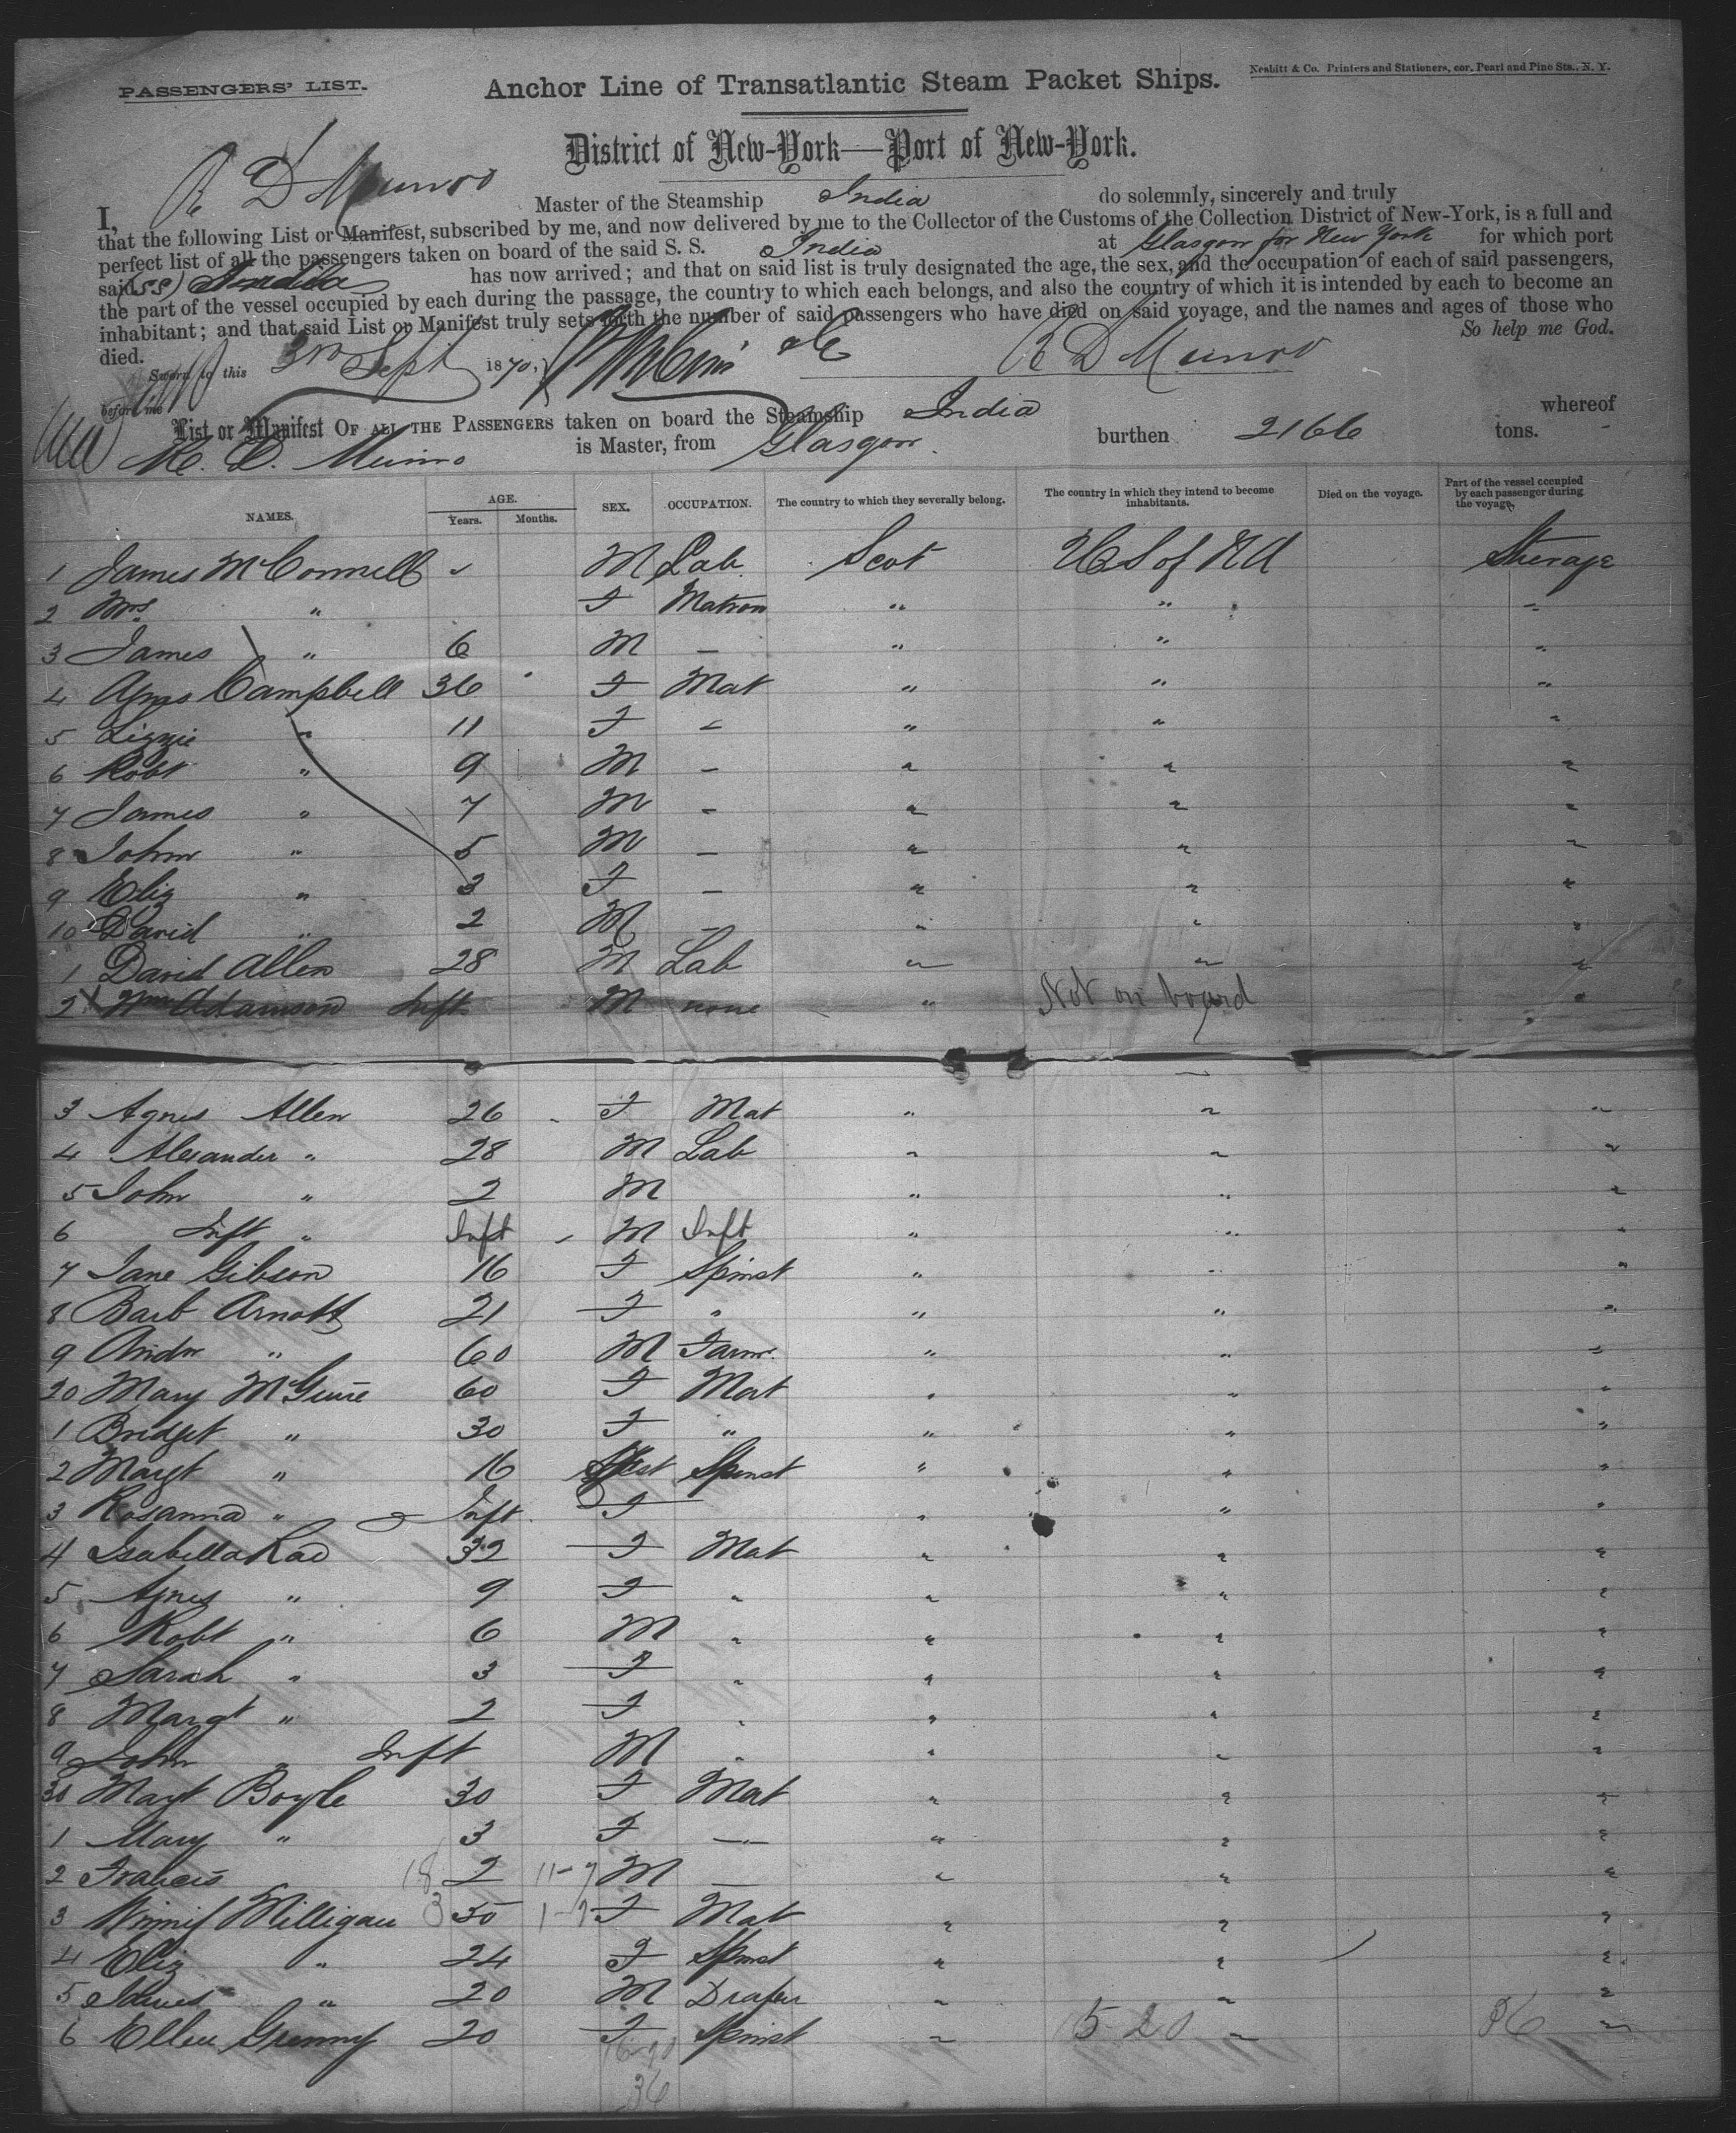 PASSENGERS' LIST.
Anchor Line of Transatlantic Steam Packet Ships.
Nesbitt & Co. Printers and Stationers, cor. Pearl and Pine Sts., N. Y.
District of New-York—Port of New-York.
I, R D Munro Master of the Steamship India do solemnly, sincerely and truly
that the following List or Manifest, subscribed by me, and now delivered by me to the Collector of the Customs of the Collection District of New-York, is a full and
perfect list of all the passengers taken on board of the said S. S. India at Glasgow for New York for which port
said (SS) India has now arrived; and that on said list is truly designated the age, the sex, and the occupation of each of said passengers,
the part of the vessel occupied by each during the passage, the country to which each belongs, and also the country of which it is intended by each to become an
inhabitant; and that said List or Manifest truly sets forth the number of said passengers who have died on said voyage, and the names and ages of those who
died. So help me God.
Sworn to this 3rd Sept 1870, R D Munro
before me
List or Manifest OF ALL THE PASSENGERS taken on board the Steamship India whereof
R. D. Munro is Master, from Glasgow burthen 2166 tons.
NAMES. AGE. Years. Months. SEX. OCCUPATION. The country to which they severally belong. The country in which they intend to become inhabitants. Died on the voyage. Part of the vessel occupied by each passenger during the voyage.
1 James McConnell M Lab Scot U S of N A Steerage
2 Mrs " F Matron " " "
3 James " 6 M — " " "
4 Agnes Campbell 36 F Mat " " "
5 Lizzie " 11 F — " " "
6 Robt " 9 M — " " "
7 James " 7 M — " " "
8 John " 5 M — " " "
9 Eliz " 3 F — " " "
10 David " 2 M — " " "
1 David Allen 28 M Lab " " "
2 X Wm Adamson Inft M none " Not on board "
3 Agnes Allen 26 F Mat " " "
4 Alexander " 28 M Lab " " "
5 John " 2 M " " "
6 Inft " Inft M Inft " " "
7 Jane Gibson 16 F Spinst " " "
8 Barb Arnott 21 F " " " "
9 Andw " 60 M Farmr " " "
20 Mary McGuire 60 F Mat " " "
1 Bridget " 30 F " " " "
2 Margt " 16 Spinst " " "
3 Rosanna " Inft F " " "
4 Isabella Rae 32 F Mat " " "
5 Agnes " 9 F " " " "
6 Robt " 6 M " " " "
7 Sarah " 3 F " " " "
8 Margt " 2 F " " " "
9 John " Inft M " " " "
30 Margt Boyle 30 F Mat " " "
1 Mary " 3 F — " " "
2 Francis 18 2 11-7 M — " " "
3 Winnif Milligan 3 50 1-7 F Mat " " "
4 Eliz " 24 F Spinst " " "
5 James " 20 M Draper " " "
6 Ellen 20 F Spinst " 5-20 " 36 "
16-20
36